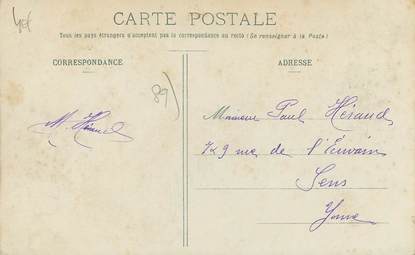 CARTE POSTALE
Tous les pays étrangers n'acceptent pas la correspondance au recto (Se renseigner à la Poste)
CORRESPONDANCE
ADRESSE
89)
Monsieur Paul Héraud
M. Héraud
rue de l'Écrivain
Sens
Yonne